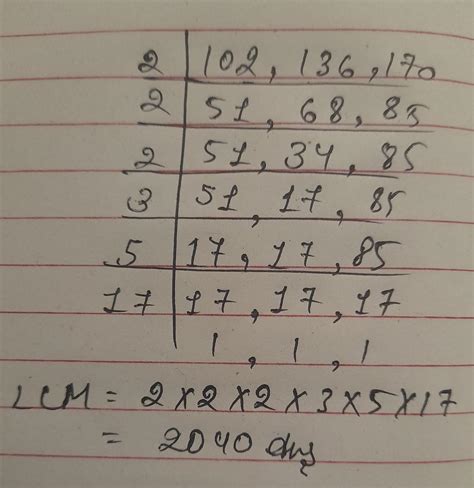 2 | 102, 136, 170
2 | 51, 68, 85
2 | 51, 34, 85
3 | 51, 17, 85
5 | 17, 17, 85
17 | 17, 17, 17
1, 1, 1
LCM = 2×2×2×3×5×17
= 2040